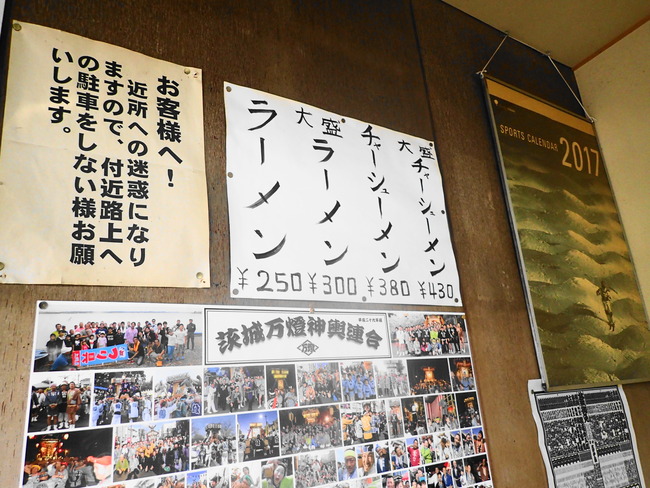 お客様へ！
近所への迷惑になり
ますので、付近路上へ
の駐車をしない様お願
いします。
ラーメン
¥250
大盛
ラーメン
¥300
チャーシューメン
¥380
大盛
チャーシューメン
¥430
茨城万燈神輿連合
SPORTS CALENDAR
2017